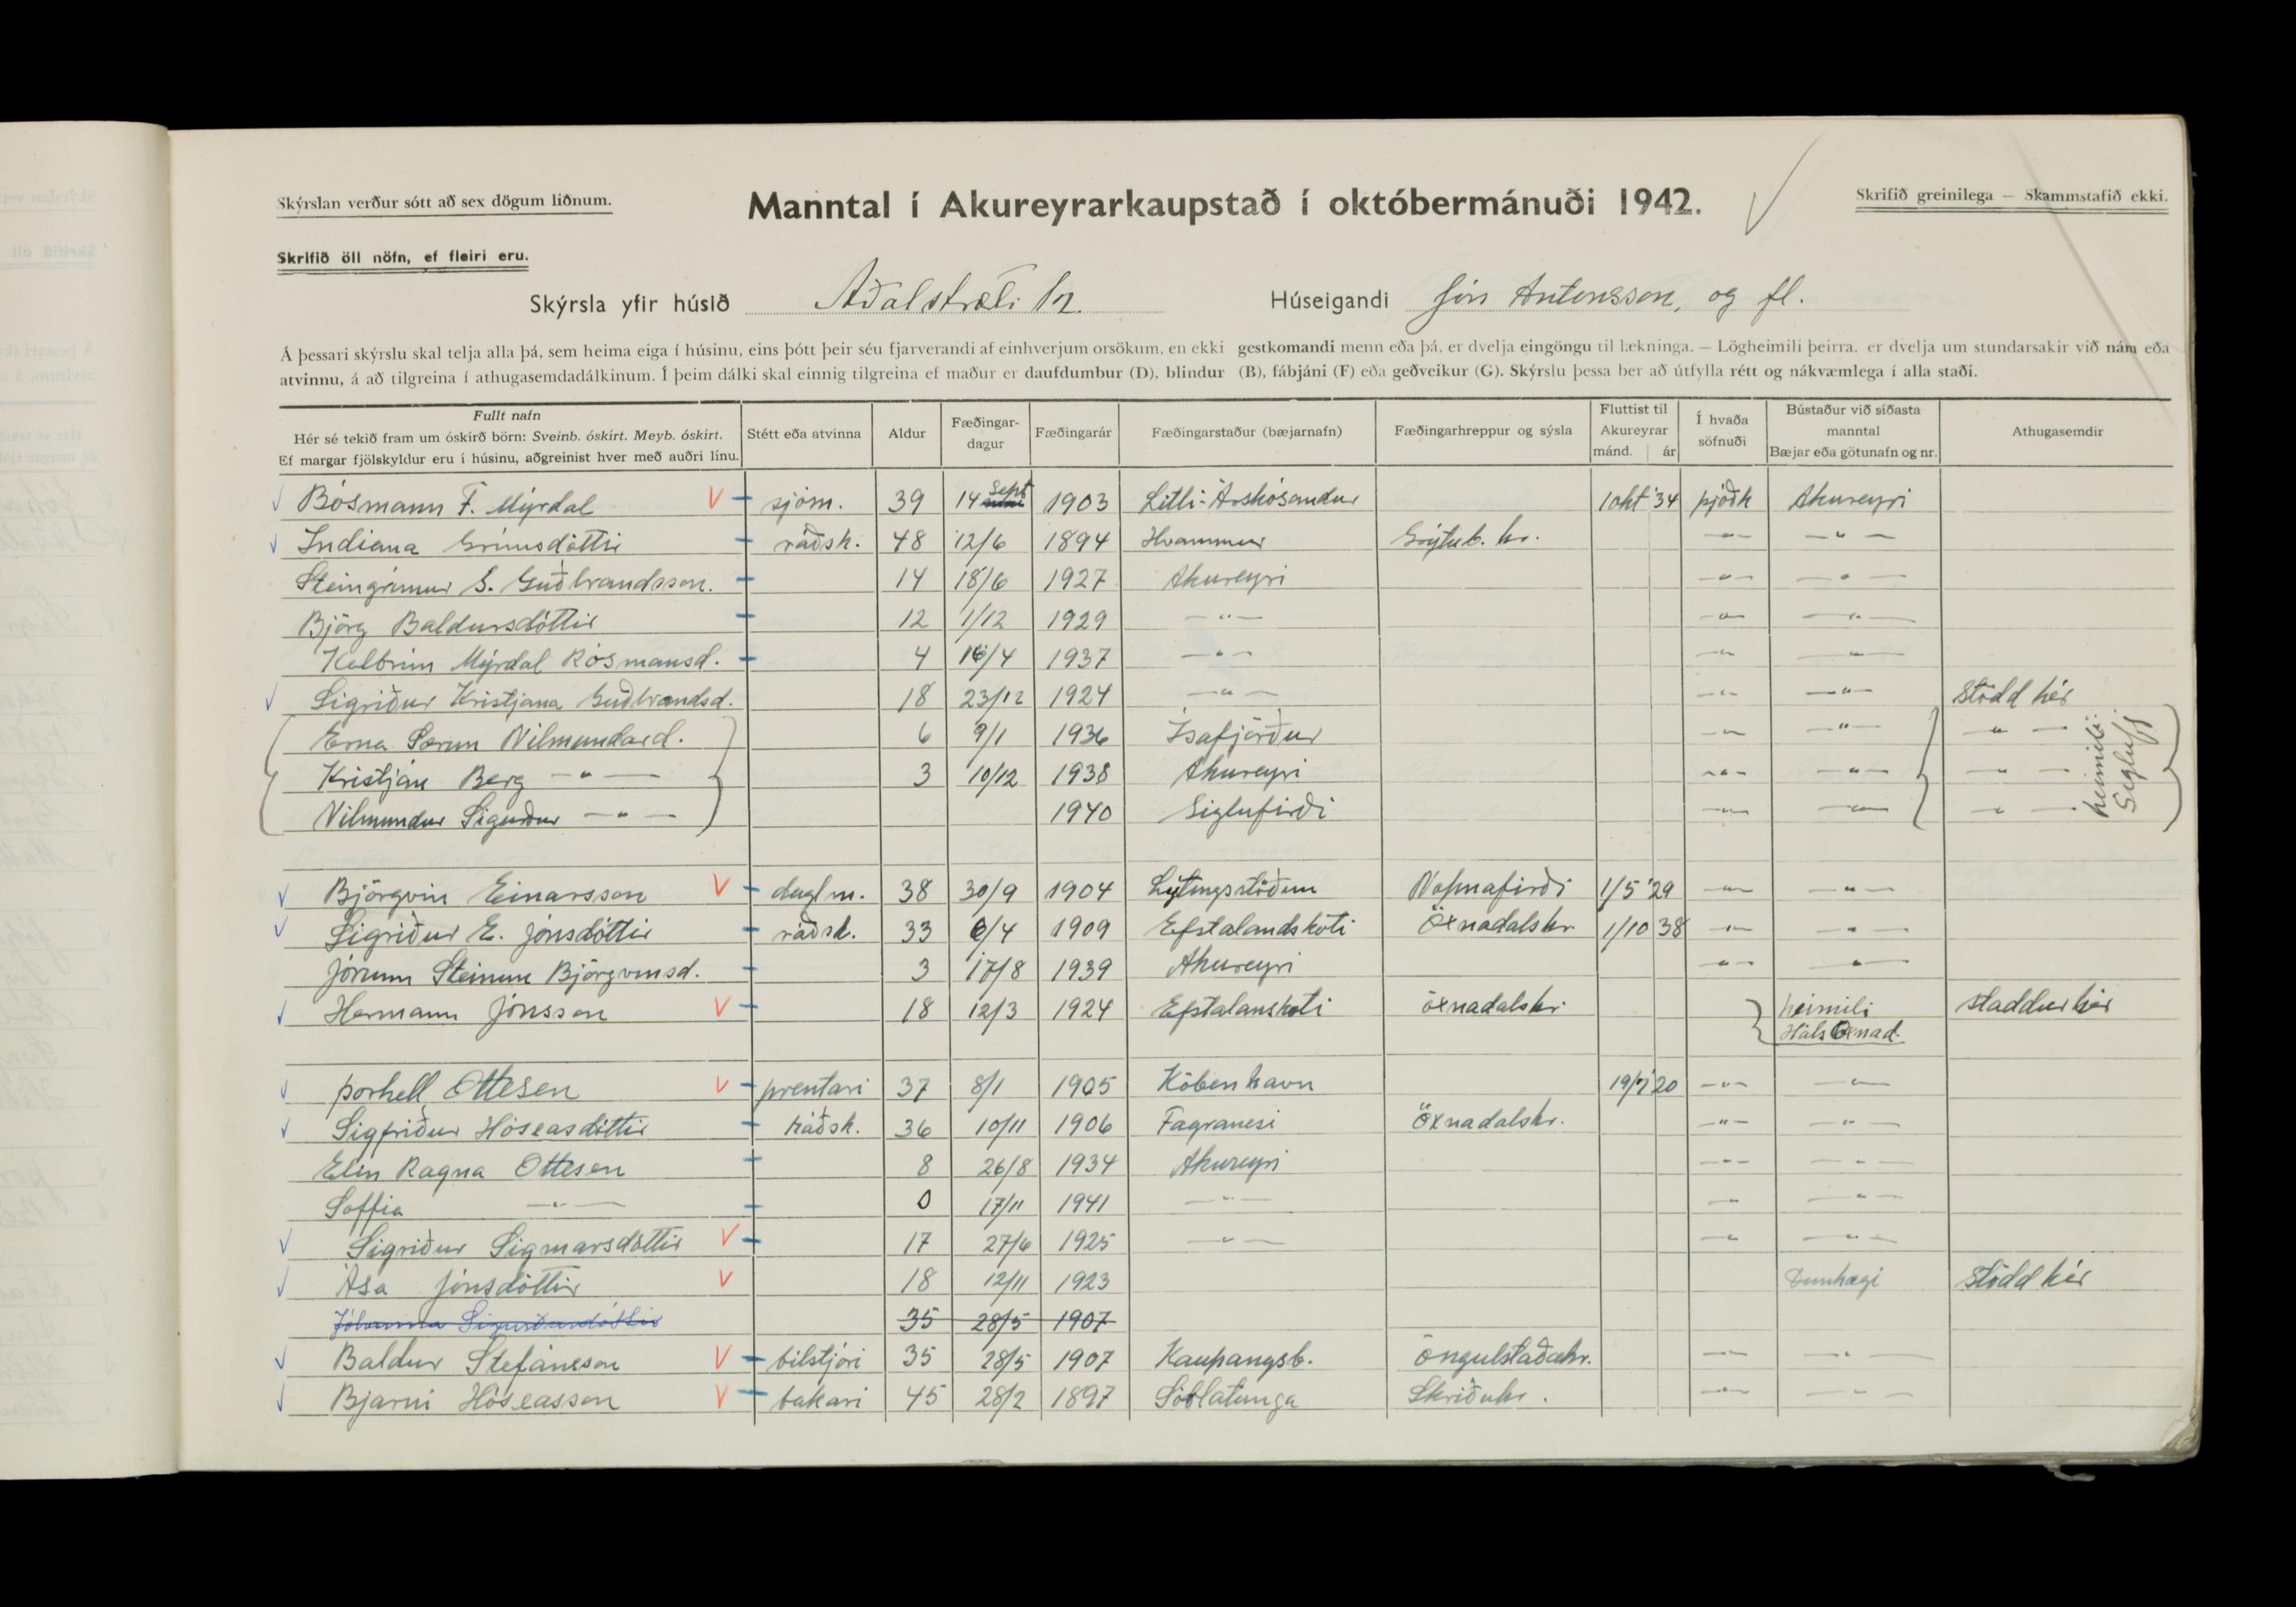 Skýrslan verður sótt að sex dögum liðnum.
Manntal í Akureyrarkaupstað í októbermánuði 1942.
Skrifið greinilega — Skammstafið ekki.
Skrifið öll nöfn, ef fleiri eru.
Skýrsla yfir húsið Aðalstræti 12. Húseigandi Jón Antonsson, og fl.
Á þessari skýrslu skal telja alla þá, sem heima eiga í húsinu, eins þótt þeir séu fjarverandi af einhverjum orsökum, en ekki gestkomandi menn eða þá, er dvelja eingöngu til lækninga. — Lögheimili þeirra. er dvelja um stundarsakir við nám eða
atvinnu, á að tilgreina í athugasemdadálkinum. Í þeim dálki skal einnig tilgreina ef maður er daufdumbur (D), blindur (B), fábjáni (F) eða geðveikur (G). Skýrslu þessa ber að útfylla rétt og nákvæmlega í alla staði.
Fullt nafn
Hér sé tekið fram um óskírð börn: Sveinb. óskírt. Meyb. óskírt.
Ef margar fjölskyldur eru í húsinu, aðgreinist hver með auðri línu.
Stétt eða atvinna
Aldur
Fæðingar-
dagur
Fæðingarár
Fæðingarstaður (bæjarnafn)
Fæðingarhreppur og sýsla
Fluttist til
Akureyrar
mánd. ár
Í hvaða
söfnuði
Bústaður við síðasta
manntal
Bæjar eða götunafn og nr.
Athugasemdir
Bósmann F. Mýrdal sjóm. 39 14 sept 1903 Litli-Árskósandur 1 okt '34 þjóðk Akureyri
Indiana Grímsdóttir ráðsk. 48 12/6 1894 Hvammur Grýtub. hr. —"— —"—
Steingrímur S. Guðbrandsson. 14 18/6 1927 Akureyri —"— —"—
Björg Baldursdóttir 12 1/12 1929 —"— —"— —"—
Kolbrún Mýrdal Rósmansd. 4 16/4 1937 —"— —"— —"—
Sigríður Kristjana Guðbrandsd. 18 23/12 1924 —"— —"— —"— Stödd hér
Erna Vilmundard. 6 9/1 1936 Ísafjörður —"— —"— —"—
Kristján Berg —"— 3 10/12 1938 Akureyri —"— —"— —"—
Vilmundur Sigurður —"— 1940 Siglufirði —"— —"— —"—
heimili:
Sigluf.
Björgvin Einarsson daglm. 38 30/9 1904 Lýtingsstöðum Vopnafirði 1/5 '29 —"— —"—
Sigríður E. Jónsdóttir ráðsk. 33 6/4 1909 Efstalandskoti Öxnadalshr 1/10 38 —"— —"—
Jórunn Steinunn Björgvinsd. 3 17/8 1939 Akureyri —"— —"—
Hermann Jónsson 18 12/3 1924 Efstalanskoti öxnadalshr. heimili staddur hér
Háls Öxnad.
Þorkell Ottesen prentari 37 8/1 1905 Köbenhavn 19/7 20 —"— —"—
Sigfríður Hóseasdóttir ráðsk. 36 10/11 1906 Fagranesi Öxnadalshr. —"— —"—
Elín Ragna Ottesen 8 26/8 1934 Akureyri —"— —"—
Soffia —"— 0 17/11 1941 —"— —"— —"—
Sigríður Sigmarsdóttir 17 27/6 1925 —"— —"— —"—
Ása Jónsdóttir 18 12/11 1923 Dunhagi Stödd hér
Jóhanna Sigurðardóttir 35 28/5 1907
Baldur Stefánsson bílstjóri 35 28/5 1907 Kaupangsb. öngulstaðahr. —"— —"—
Bjarni Hóseasson bakari 45 28/2 1897 Sörlatunga Skriðuhr. —"— —"—